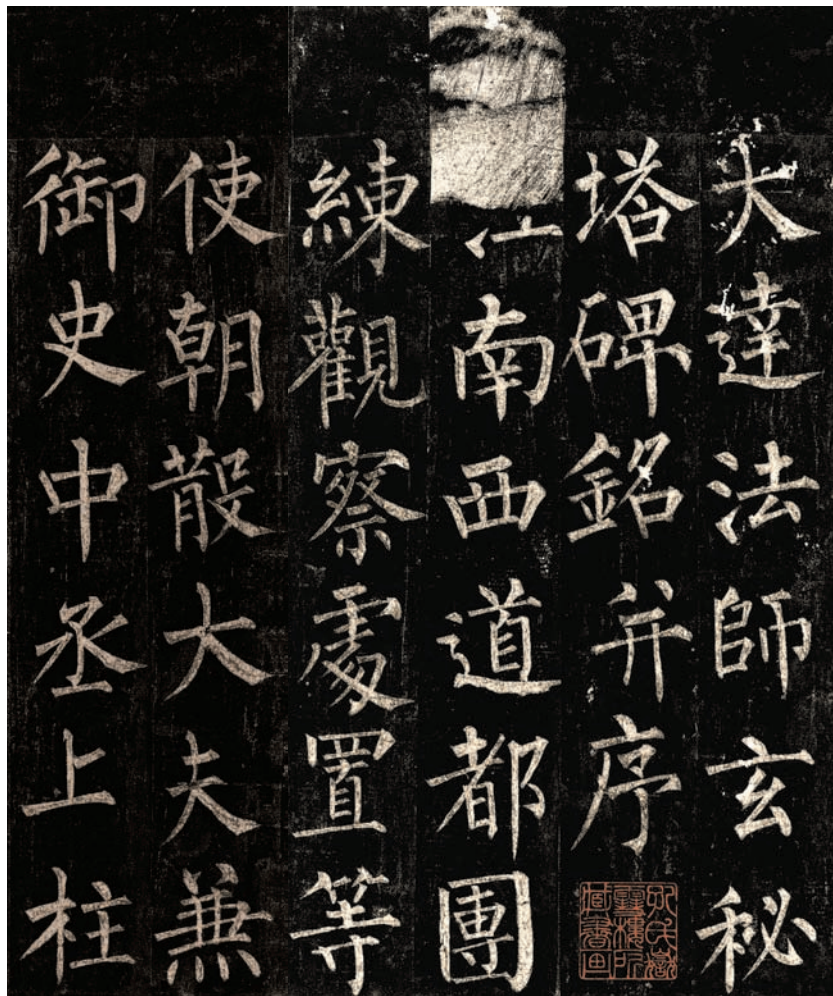 大達法師玄秘
塔碑銘并序
江南西道都團
練觀察處置等
使朝散大夫兼
御史中丞上柱